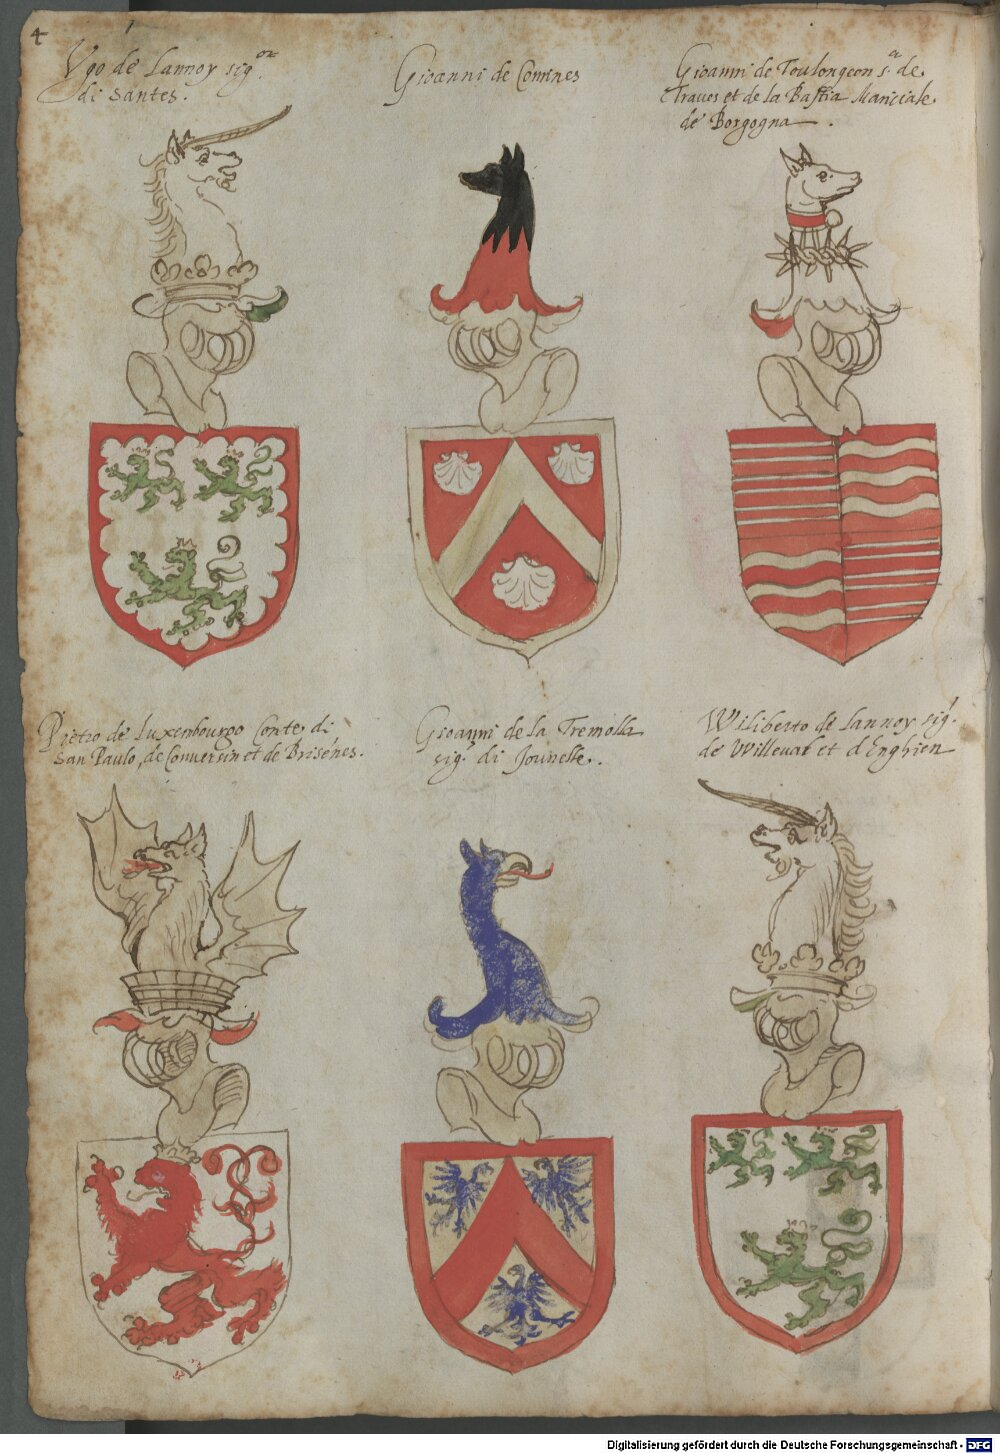 4
Vgo de Lannoy sig.or
di Santes.
Gioanni de Comines
Gioanni de Toulongeon s.a de
Traues et de la Bastia Mariciale
de Borgogna.
Pietro de Luxenbourgo Conte di
San Paulo, de Conuersin et de Brisenes.
Gioanni de la Tremolla
sig.r di Jounelle.
Wiliberto de Lannoy sig.r
de Willeual et d'Enghien
Digitalisierung gefördert durch die Deutsche Forschungsgemeinschaft - DFG